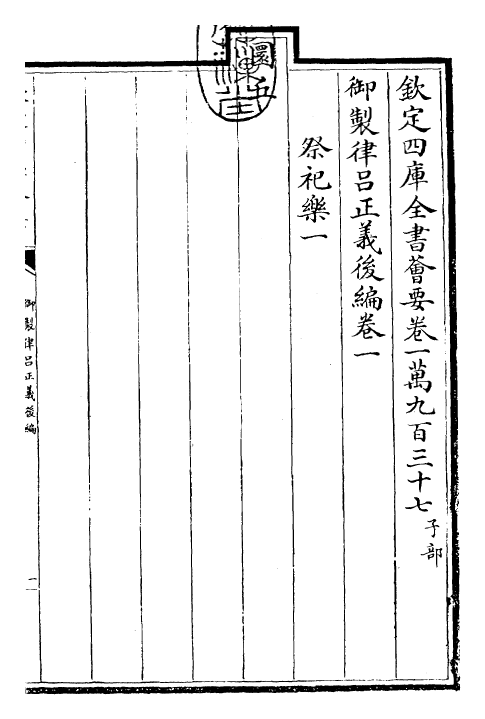 欽定四庫全書薈要卷一萬九百三十七子部
御製律呂正義後編卷一
祭祀樂一
御製律呂正義後編